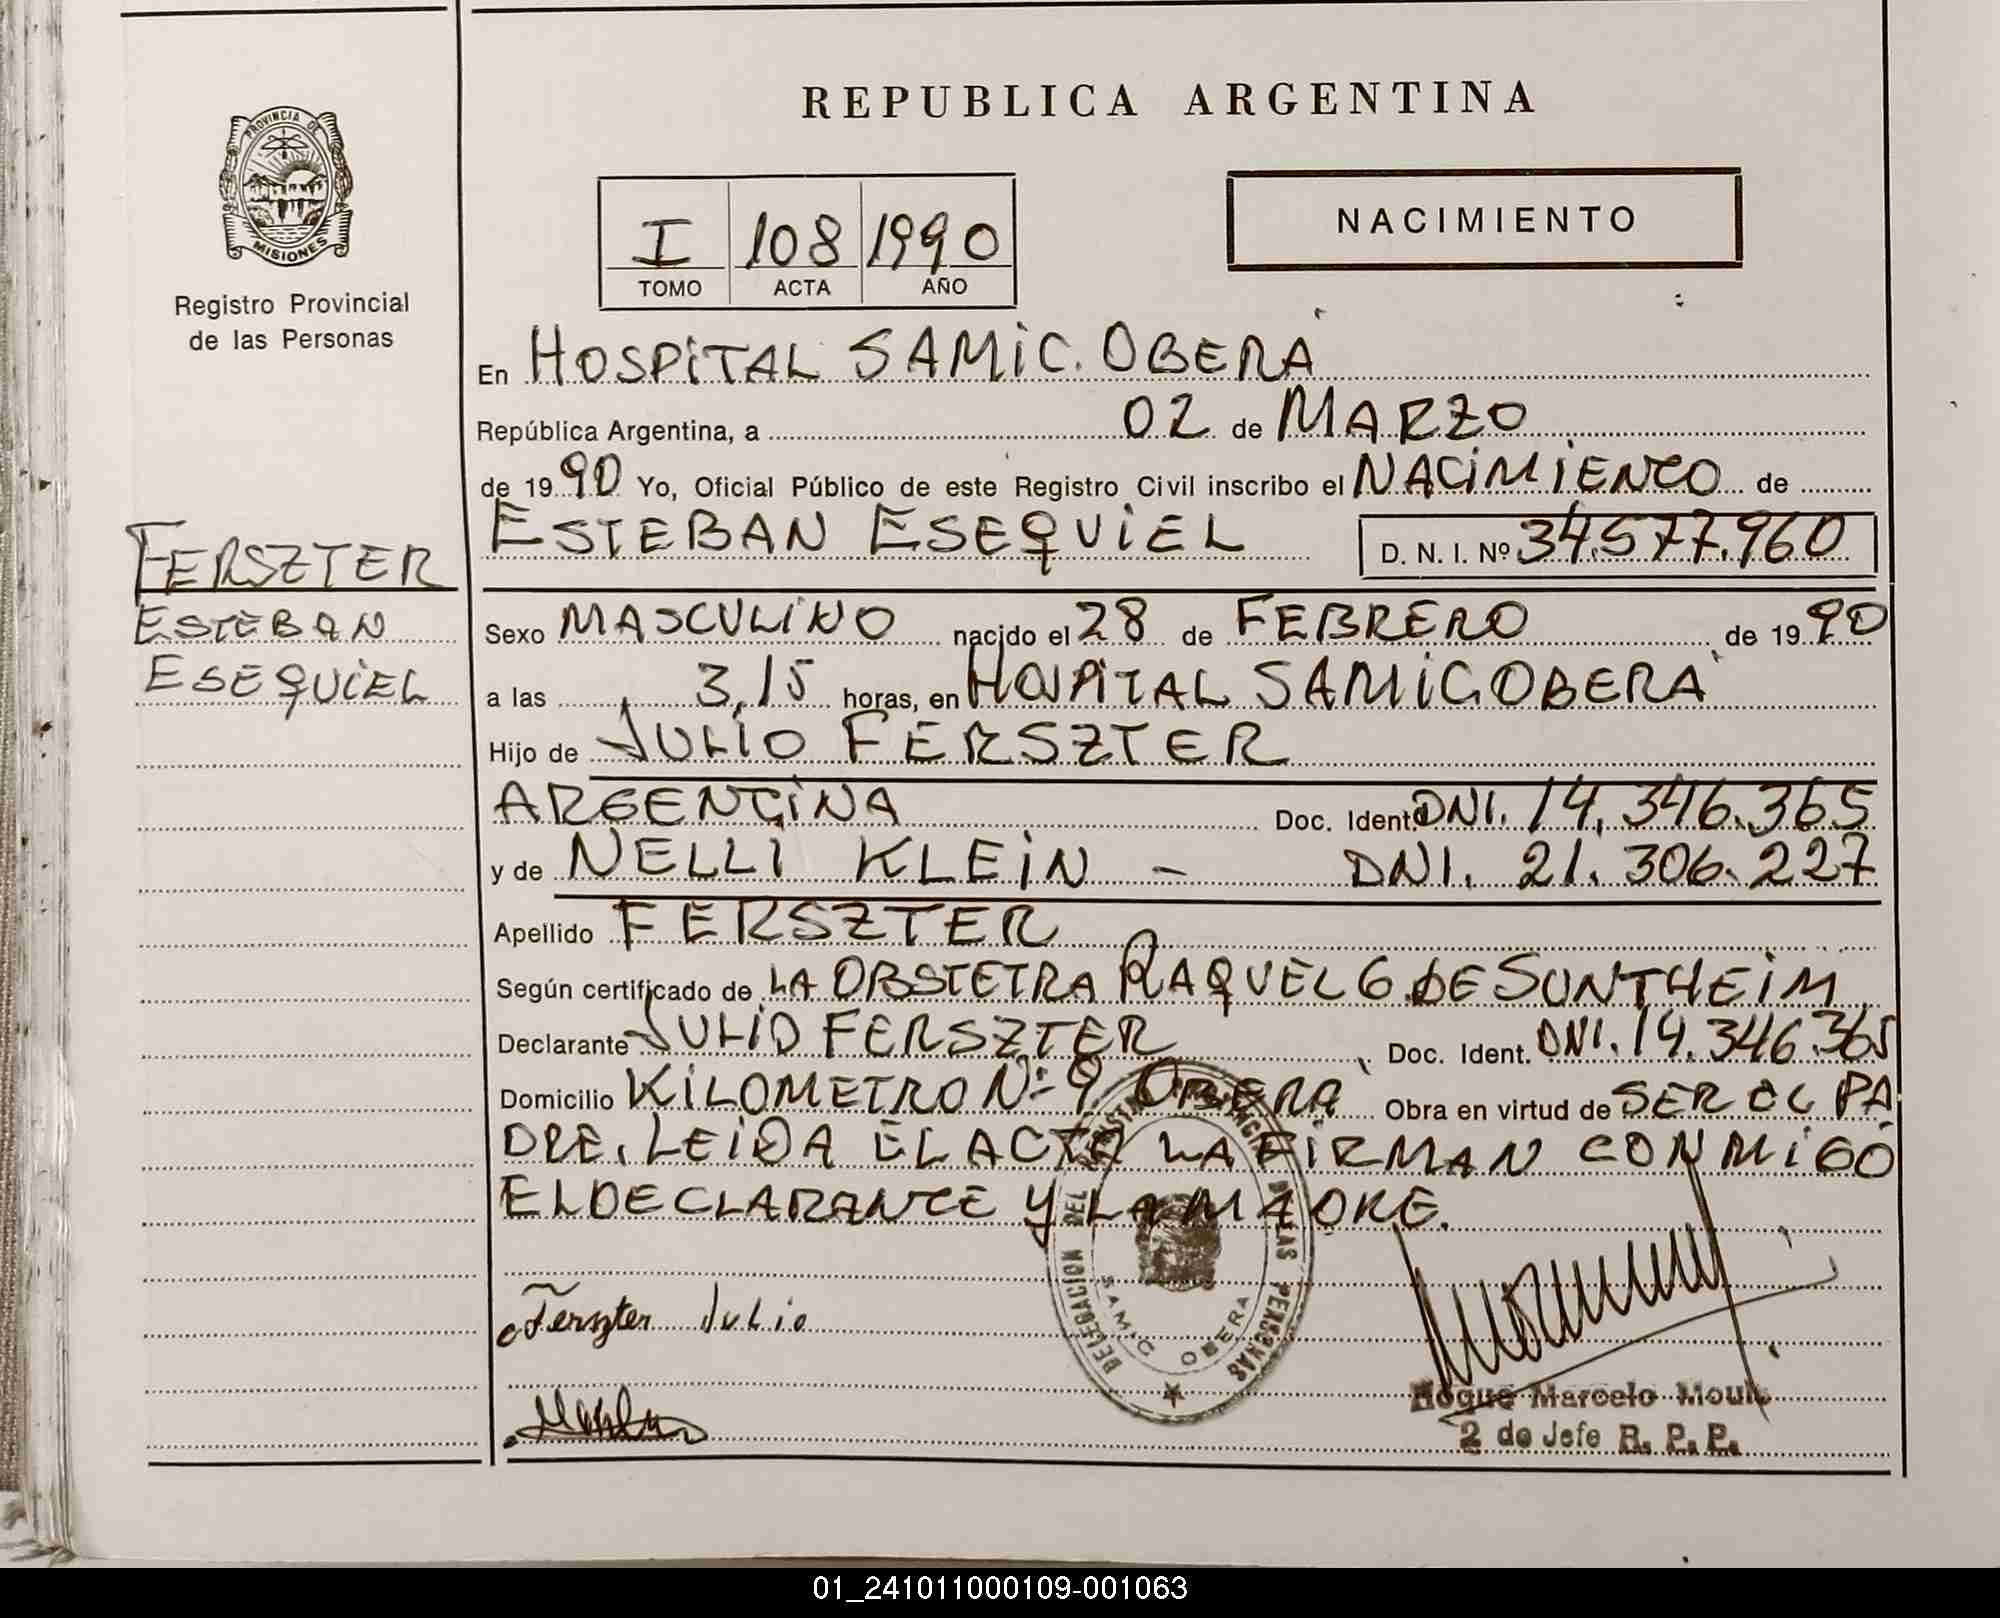 REPUBLICA ARGENTINA
PROVINCIA DE
MISIONES
Registro Provincial
de las Personas
I 108 1990
TOMO ACTA AÑO
NACIMIENTO
En HOSPITAL SAMIC. OBERÁ
República Argentina, a 02 de MARZO
de 1990 Yo, Oficial Público de este Registro Civil inscribo el NACIMIENTO de
ESTEBAN ESEQUIEL D. N. I. Nº 34.577.960
FERSZTER
ESTEBAN
ESEQUIEL
Sexo MASCULINO nacido el 28 de FEBRERO de 1990
a las 3,15 horas, en HOSPITAL SAMIC OBERA
Hijo de JULIO FERSZTER
ARGENTINA Doc. Ident. DNI. 14.346.365
y de NELLI KLEIN - DNI. 21.306.227
Apellido FERSZTER
Según certificado de LA OBSTETRA RAQUEL G. DE SUNTHEIM
Declarante JULIO FERSZTER Doc. Ident. DNI. 14.346.365
Domicilio KILOMETRO Nº 9 OBERÁ Obra en virtud de SER EL PA
DRE. LEIDA EL ACTA LA FIRMAN CONMIGO
EL DECLARANTE Y LA MADRE.
Ferszter Julio
DELEGACION DEL REGISTRO PROVINCIAL DE LAS PERSONAS
SAMIC OBERA
Marcelo
2 do Jefe R. P. P.
01_241011000109-001063